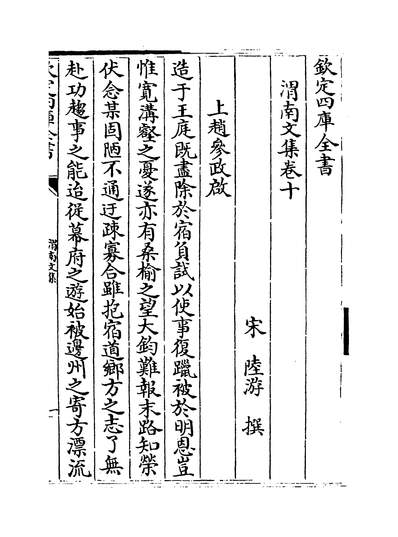 欽定四庫全書
渭南文集卷十
宋 陸游 撰
上趙參政啟
造于王庭既盡除於宿負試以使事復躐被於明恩豈
惟寛溝壑之憂遂亦有桑榆之望大鈞難報末路知榮
伏念某固陋不通迂疎寡合雖抱宿道鄉方之志了無
赴功趨事之能迨從幕府之游始被邊州之寄方漂流
渭南文集